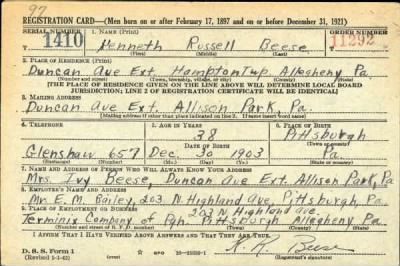 97
REGISTRATION CARD—(Men born on or after February 17, 1897 and on or before December 31, 1921)
SERIAL NUMBER 1. NAME (Print) ORDER NUMBER
1410 Kenneth Russell Beese 11292
(First) (Middle) (Last)
2. PLACE OF RESIDENCE (Print)
Duncan Ave Ext. Hampton Twp Allegheny Pa.
(Number and street) (Town, township, village, or city) (County) (State)
[THE PLACE OF RESIDENCE GIVEN ON THE LINE ABOVE WILL DETERMINE LOCAL BOARD
JURISDICTION; LINE 2 OF REGISTRATION CERTIFICATE WILL BE IDENTICAL]
3. MAILING ADDRESS
Duncan Ave Ext. Allison Park, Pa.
[Mailing address if other than place indicated on line 2. If same insert word same]
4. TELEPHONE 5. AGE IN YEARS 6. PLACE OF BIRTH
38 Pittsburgh
DATE OF BIRTH
Glenshaw 657 Dec. 30 1903 Pa.
(Exchange) (Number) (Mo.) (Day) (Yr.) (State or country)
7. NAME AND ADDRESS OF PERSON WHO WILL ALWAYS KNOW YOUR ADDRESS
Mrs Ivy Beese, Duncan Ave Ext. Allison Park, Pa
8. EMPLOYER'S NAME AND ADDRESS
Mr. E. M. Bailey, 203 N Highland Ave, Pittsburgh, Pa.
9. PLACE OF EMPLOYMENT OR BUSINESS 203 N Highland Ave.
Terminix Company of Pgh. Pittsburgh Allegheny Pa
(Number and street or R. F. D. number) (Town) (County) (State)
I AFFIRM THAT I HAVE VERIFIED ABOVE ANSWERS AND THAT THEY ARE TRUE.
D. S. S. Form 1
(Revised 1-1-42) GPO K. R. Beese
(Registrant's signature)